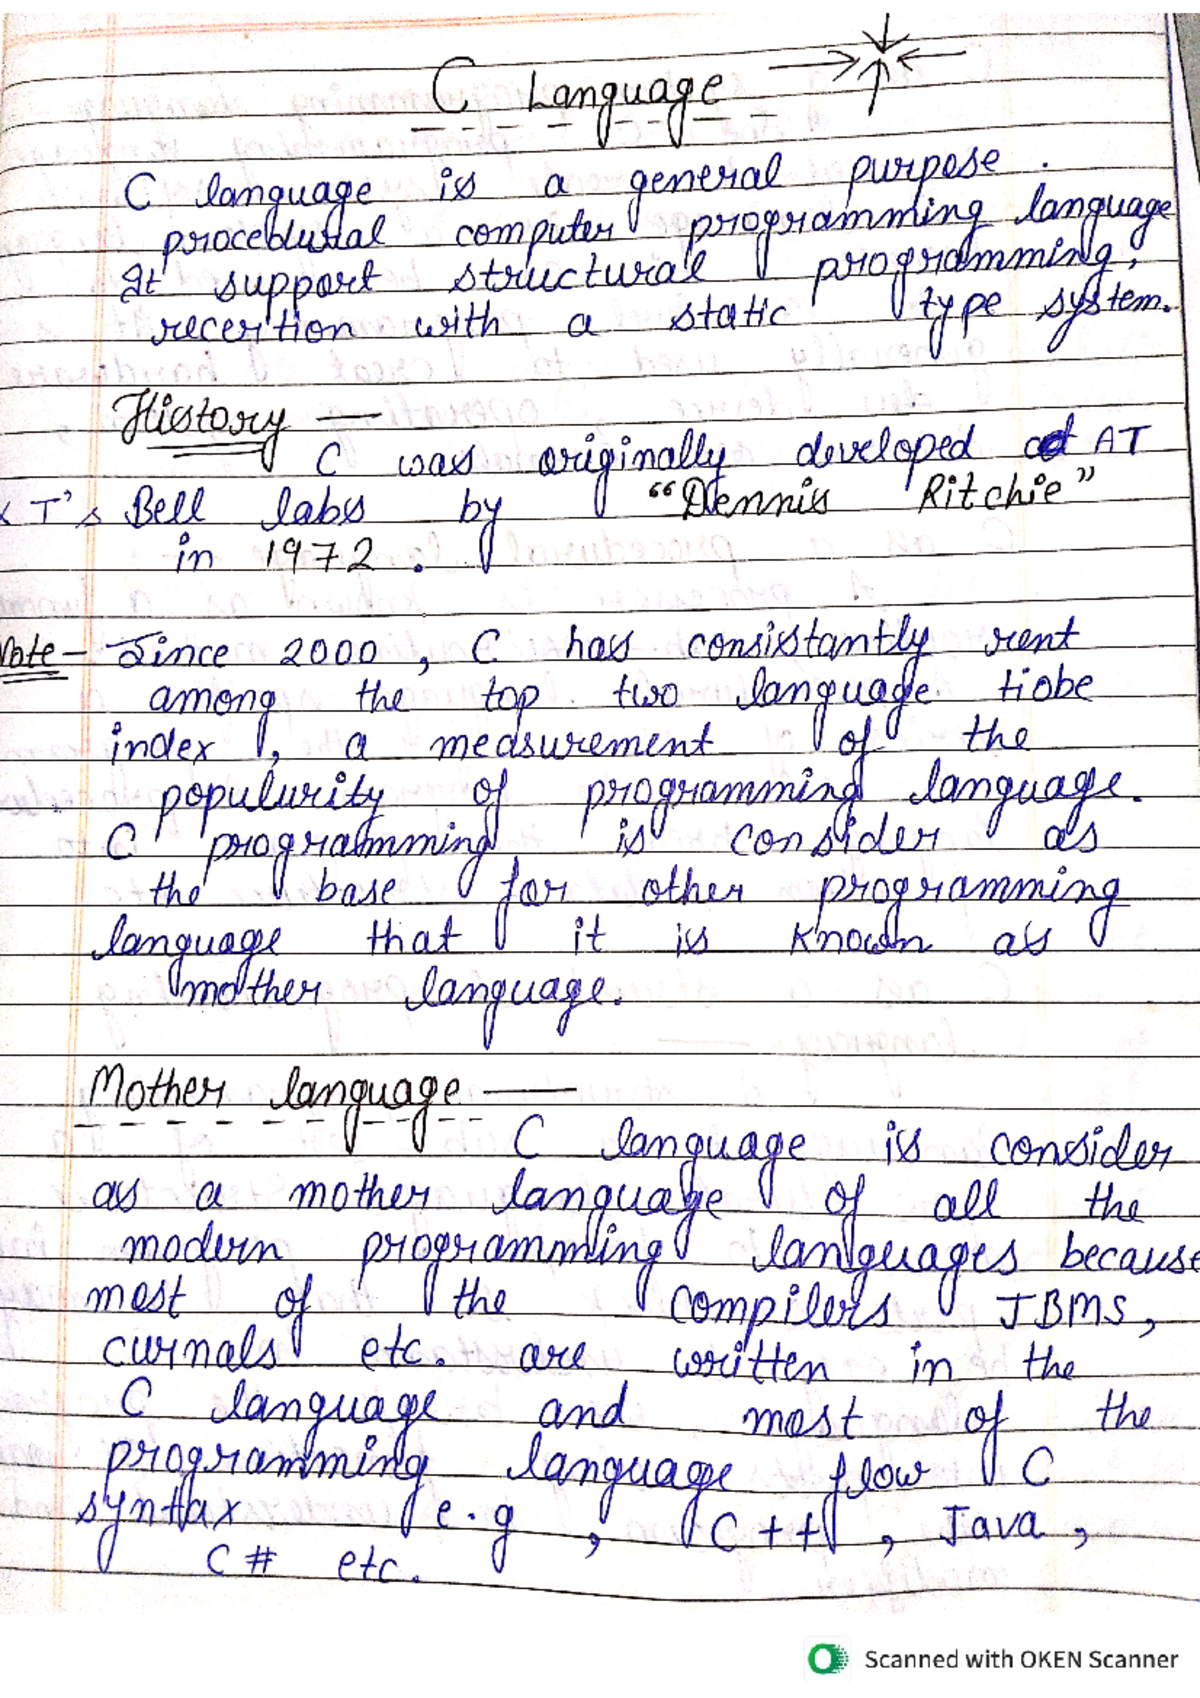 C Language
C language is a general purpose.
procedural computer programming language
It support structural programming,
recertion with a static type system.
History —
C was originally developed at AT
& T's Bell labs by "Dennis Ritchie"
in 1972.
Note - Since 2000, C has consistantly rent
among the top two language tiobe
index, a measurement of the
populurity of programming language.
C programming is consider as
the base for other programming
language that it is known as
mother language.
Mother language —
C language is consider
as a mother language of all the
modern programming languages because
most of the compilers JBMS,
curnals etc. are written in the
C language and most of the
programming language flow C
syntax e.g, C++, Java,
C# etc.
Scanned with OKEN Scanner